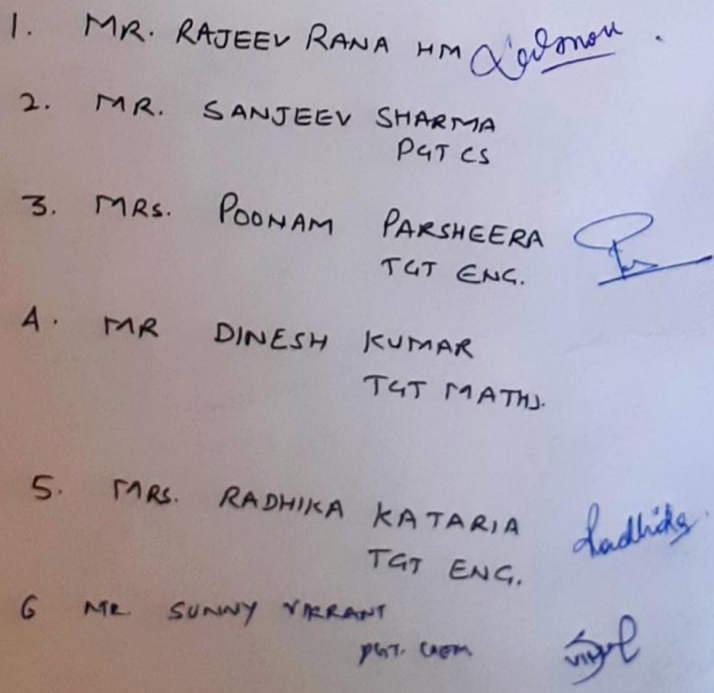 1. MR. RAJEEV RANA HM
2. MR. SANJEEV SHARMA
PGT CS
3. MRS. POONAM PARSHEERA
TGT ENG.
4. MR DINESH KUMAR
TGT MATHS.
5. MRS. RADHIKA KATARIA Radhika
TGT ENG.
6 MR. SUNNY VIKRANT
PGT. CHEM.